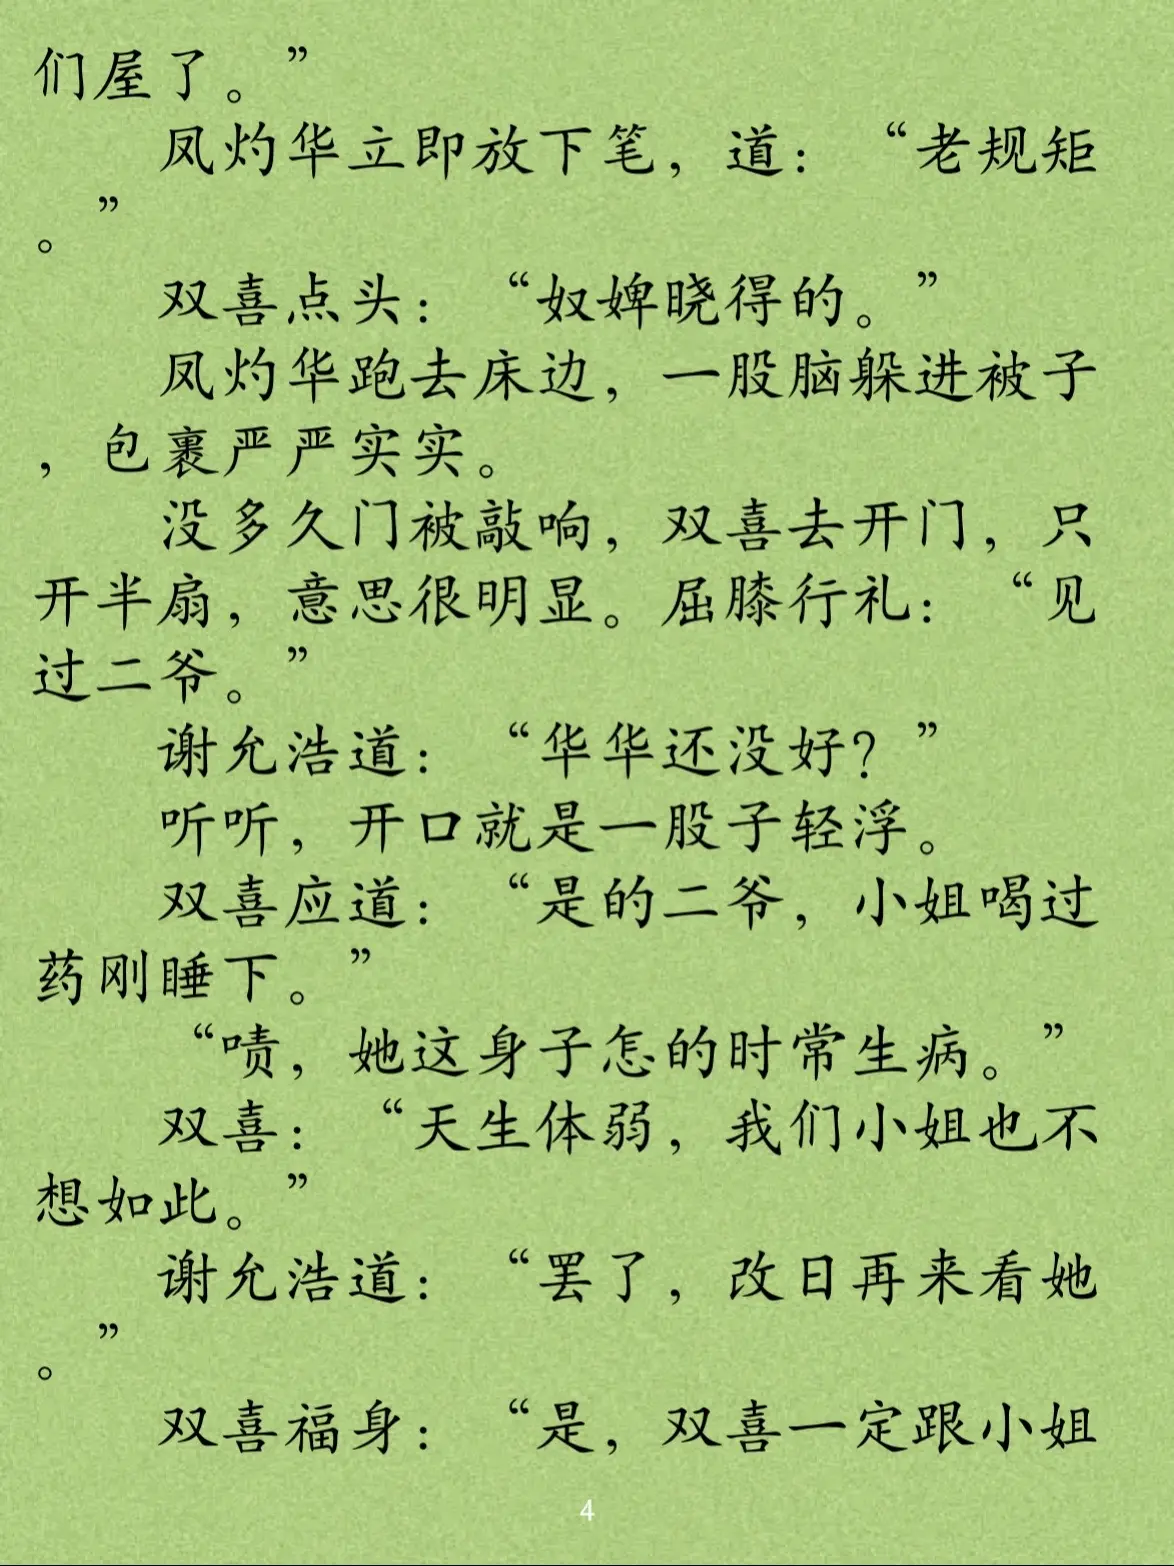 们屋了。”
凤灼华立即放下笔，道：“老规矩
。”
双喜点头：“奴婢晓得的。”
凤灼华跑去床边，一股脑躲进被子
，包裹严严实实。
没多久门被敲响，双喜去开门，只
开半扇，意思很明显。屈膝行礼：“见
过二爷。”
谢允浩道：“华华还没好？”
听听，开口就是一股子轻浮。
双喜应道：“是的二爷，小姐喝过
药刚睡下。”
“啧，她这身子怎的时常生病。”
双喜：“天生体弱，我们小姐也不
想如此。”
谢允浩道：“罢了，改日再来看她
。”
双喜福身：“是，双喜一定跟小姐
4